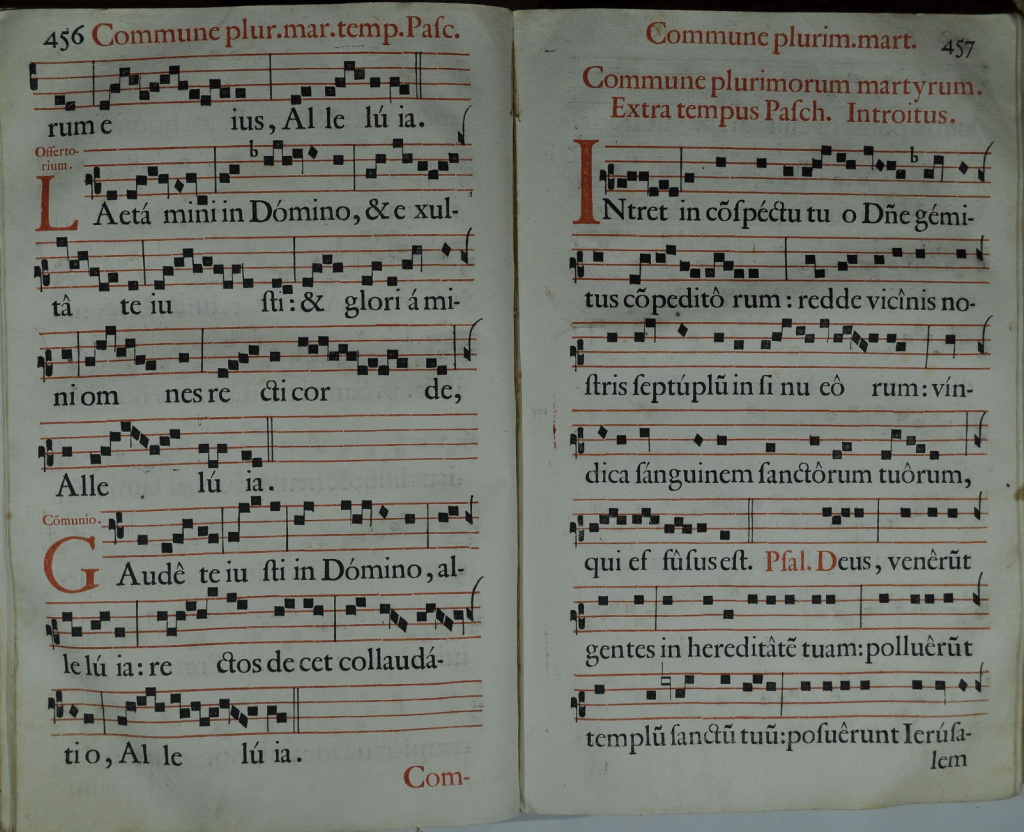 456 Commune plur.mar.temp.Paſc.
rum e ius, Al le lú ia.
Offerto-
rium.
LAetá mini in Dómino, & e xul-
tâ te iu ſti : & glori á mi-
ni om nes re cti cor de,
Alle lú ia.
Cômunio.
GAudê te iu ſti in Dómino, al-
le lú ia: re ctos de cet collaudá-
ti o, Al le lú ia.
Com-
Commune plurim.mart. 457
Commune plurimorum martyrum.
Extra tempus Paſch. Introitus.
INtret in cõſpéctu tu o Dñe gémi-
tus cõpeditô rum : redde vicînis no-
ſtris ſeptúplũ in ſi nu eô rum: vín-
dica ſánguinem ſanctôrum tuôrum,
qui ef fûſus eſt. Pſal. Deus, venêrũt
gentes in hereditâtẽ tuam: polluêrũt
templũ ſanctũ tuũ: poſuêrunt Ierúſa-
lem